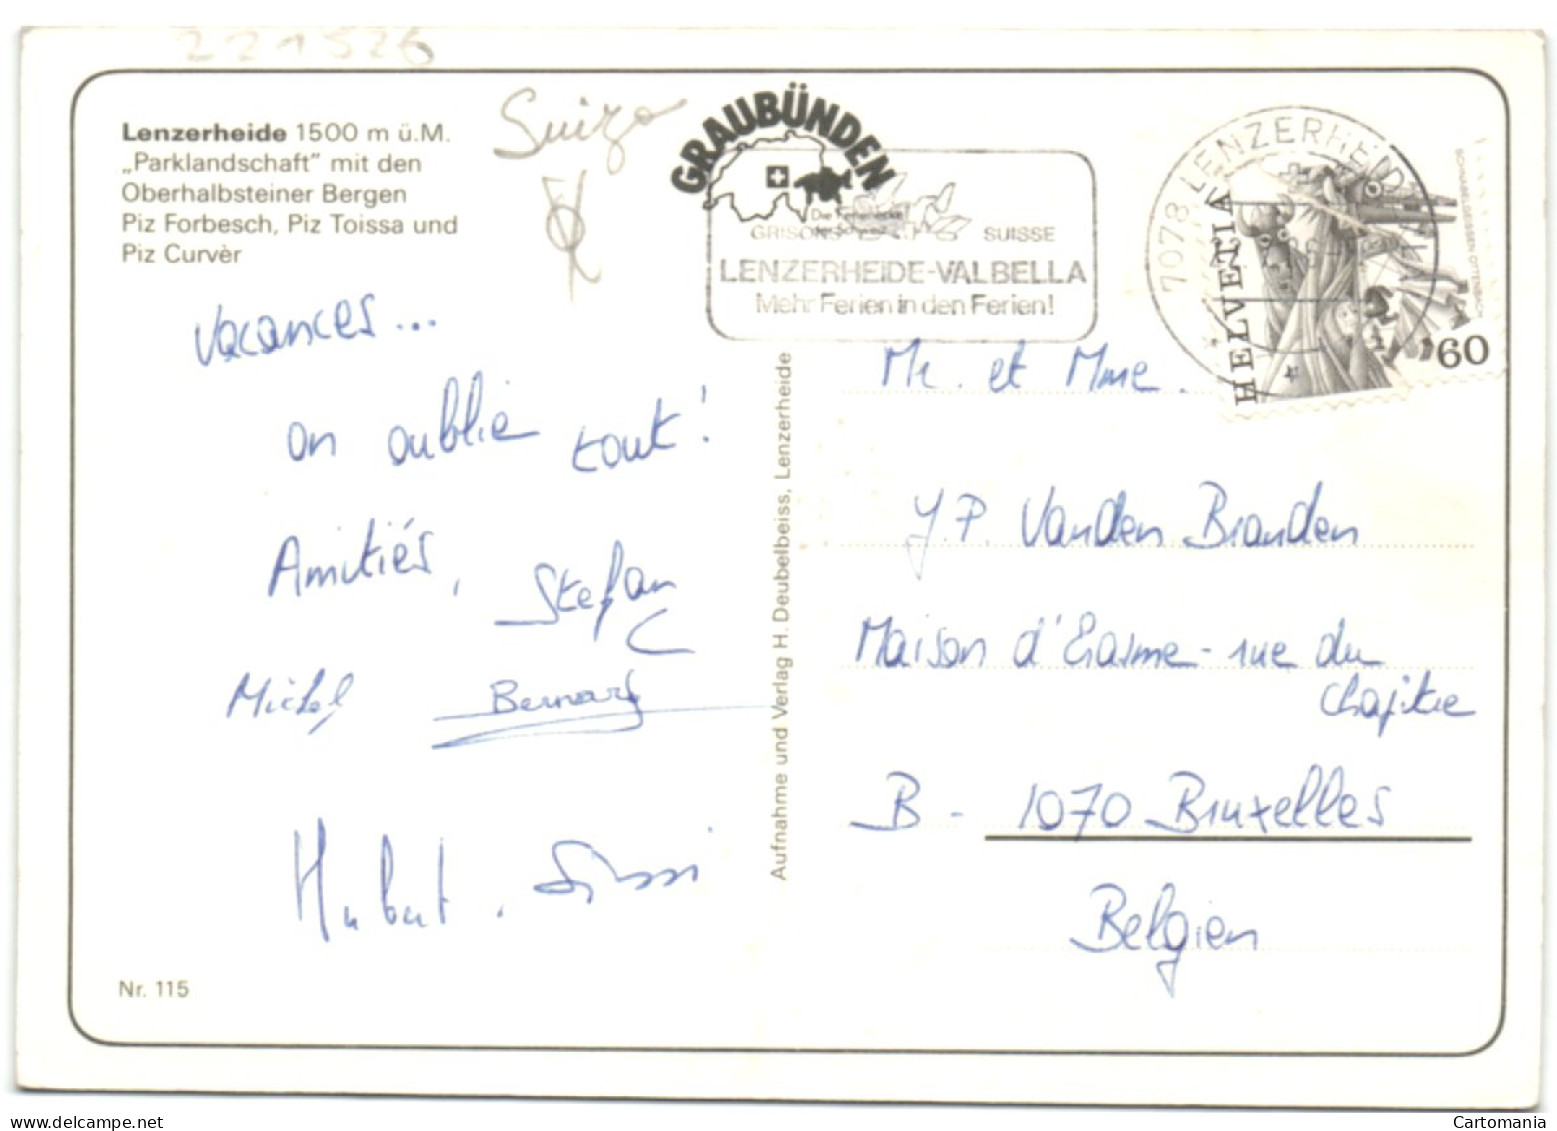 221526
Lenzerheide 1500 m ü.M.
„Parklandschaft" mit den
Oberhalbsteiner Bergen
Piz Forbesch, Piz Toissa und
Piz Curvèr
Suiza
GRAUBÜNDEN
GRISONS SUISSE
LENZERHEIDE-VALBELLA
Mehr Ferien in den Ferien!
7078 LENZERHEIDE
HELVETIA
60
Vacances...
on oublie tout!
Amitiés, Stefan
Michel Bernard
Hubert. Sissi
Nr. 115
Aufnahme und Verlag H. Deubelbeiss, Lenzerheide
Mr. et Mme.
J.P. Vanden Branden
Maison d'Erasme - rue du
Chapitre
B - 1070 Bruxelles
Belgien
Cartomania